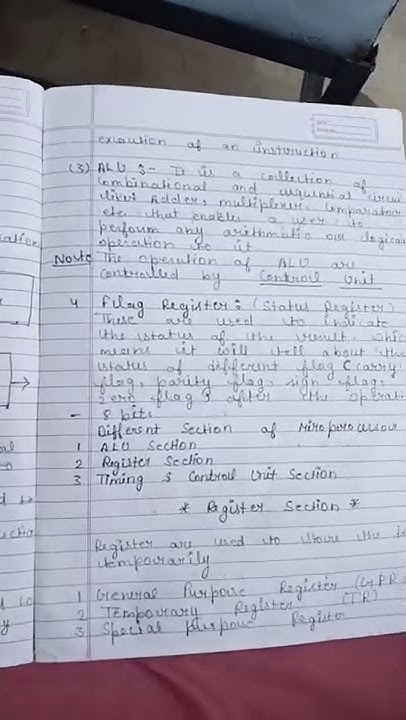 execution of an instruction
(3) ALU :- It is a collection of
combinational and sequential circui
like Adder, multiplexer, Comparator
etc that enables a user to
perform any arithmetic or logical
operation to it
Note The operation of ALU are
controlled by Controll Unit
4 Flag Register : (Status Register)
These are used to indicate
the status of the result. which
means it will tell about the
status of different flag (carry
flag, parity flag, sign flag,
zero flag) after the operati
- 8 bits.
Different Section of
1 ALU Section
2 Register Section
3 Timing & Controll Unit Section
* Register Section *
Register are used to store the
temporarily
1 General Purpose Register (GPR
2 Temporary Register (TR)
3 Special purpose Register